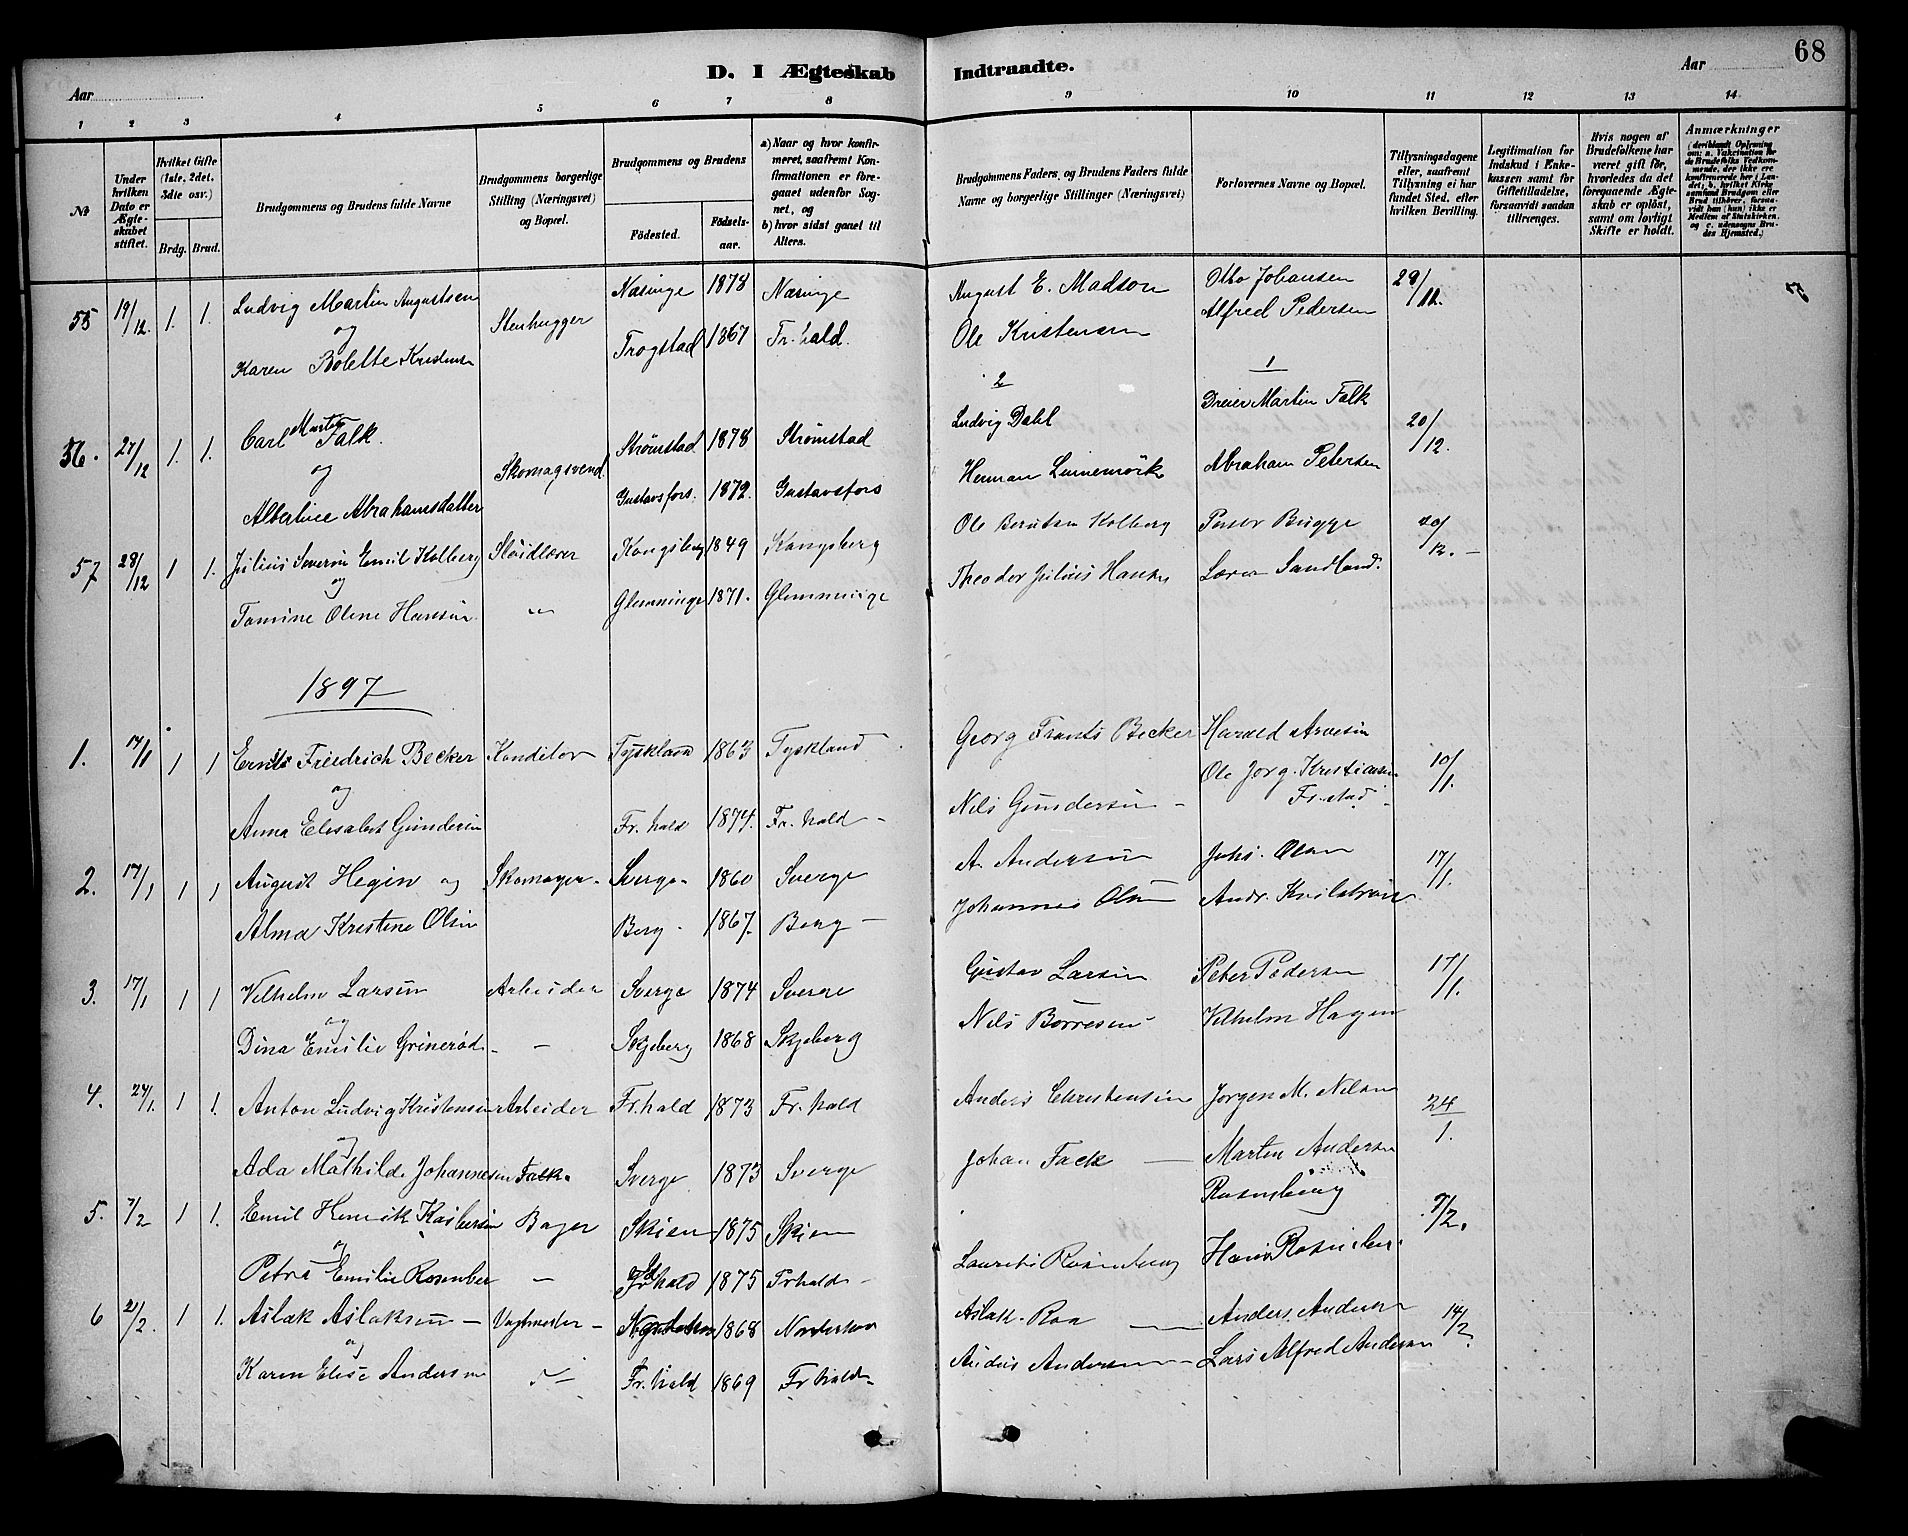 68
D. I Ægteskab Indtraadte.
Aar
Aar
1 2 3 4 5 6 7 8 9 10 11 12 13 14
№
Under hvilken Dato er Ægteskabet stiftet.
Hvilket Gifte (1ste, 2det, 3die osv.)
Brdg. Brud.
Brudgommens og Brudens fulde Navne
Brudgommens borgerlige Stilling (Næringsvei) og Bopæl.
Brudgommens og Brudens
Fødested. Fødselsaar.
a) Naar og hvor konfirmeret, saafremt Konfirmationen er foregaaet udenfor Sognet, og
b) hvor sidst gaaet til Alters.
Brudgommens Faders, og Brudens Faders fulde Navne og borgerlige Stillinger (Næringsvei)
Forlovernes Navne og Bopæl.
Tillysningsdagene eller, saafremt Tillysning ei har fundet Sted, efter hvilken Bevilling.
Legitimation for Indskud i Enkekassen samt for Giftetilladelse, forsaavidt saadan tiltrænges.
Hvis nogen af Brudefolkene har været gift før, hvorledes da det foregaaende Ægteskab er opløst, samt om lovligt Skifte er holdt.
Anmærkninger
55 19/12. 1. 1. Ludvig Martin Augustsen Stenhugger Næsinge 1878 Næsinge August E. Madson Otto Johansen 29/11.
og Alfred Pedersen
Karen Bolette Kristensen Trogstad 1867 Fr.hald. Ole Kristensen
2 1
56. 27/12 1. 1. Carl Martin Falk. Skomagsvend Strømstad 1878 Strømstad Ludvig Dahl Dreier Martin Falk 20/12.
og
Albertine Abrahamsdatter Gustavsfors. 1872. Gustavsfors Herman Abraham Petersen
57 28/12 1 1. Julius Severin Emil Kolberg Sløidlærer Kongsberg 1849 Kongsberg Ole Berntsen Kolberg Bugge 20/12.
og
Tomine Oline Hansen " Glemminge 1871. Glemminge Theodor Julius Hansen Lærer Sandland.
1897
1. 17/1 1 1 Friedrich Becker Konditor Tyskland 1863 Tyskland Georg Frants Becker Harald Arnesen 10/1.
og Ole Jørg. Kristiansen
Anna Elisabet Gundersen Fr.hald 1874. Fr.hald Nils Gundersen Fr.stad
2. 17/1 1 1 August Hegin og Skomager Sverge 1860 Sverge A. Andersen Johs. Olsen 17/1.
Alma Kristine Olsen Berg 1867. Berg Johannes Olsen Andr.
3. 17/1 1 1 Vilhelm Larsen Arbeider Sverge 1874 Sverge Gustav Larsen Peter Pedersen 17/1.
og
Dina Emilie Grinerød Skjeberg 1868 Skjeberg Nils Børresen Vilhelm Hagen
4. 24/1. 1 1. Anton Ludvig Kristensen Arbeider Fr.hald 1873 Fr.hald Anders Christensen Jørgen M. Nilsen 24/1.
og
Ada Mathilde Johannesen Falk. Sverge 1873 Sverge Johan Fack Marten Andersen
5. 7/2 1 1. Emil Henrik Bager Skien 1875 Skien Rosenberg 7/2.
og
Petra Emilie Rosenber Fr.hald 1875 Frhald Laurits Rosenberg Hans Rosenber
6 21/2. 1 1. Aslak Aslaksen Vagtmester 1868 Norderhov Aslak Roa Anders Andersen 14/2.
og
Karen Elise Andersen Fr.hald 1869 Fr hald Anders Andersen Lars Alfred Andersen